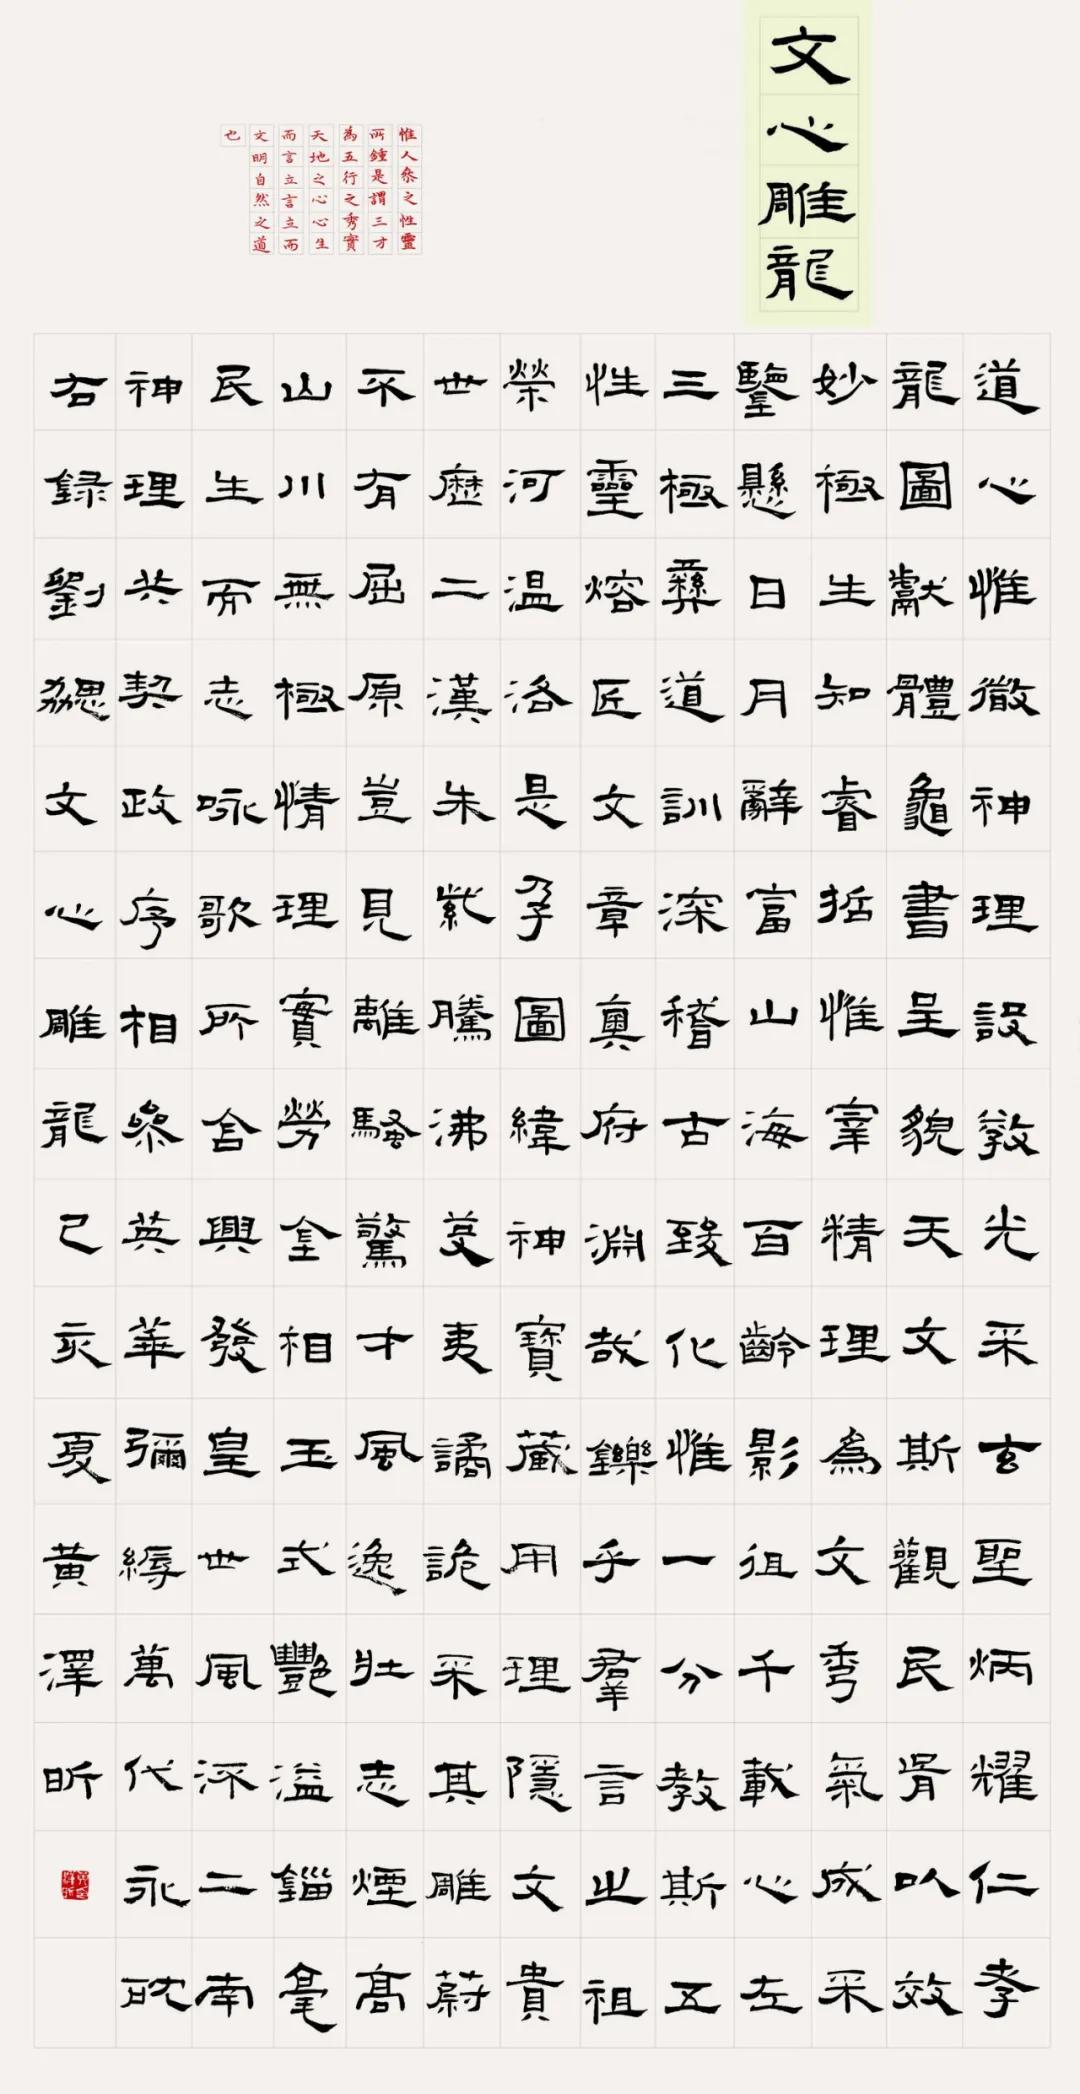 文心雕龍
惟人叅之性靈
所鍾是謂三才
為五行之秀實
天地之心心生
而言立言立而
文明自然之道
也
道心惟微神理設教光采玄聖炳耀仁孝
龍圖獻體龜書呈貌天文斯觀民胥以效
妙極生知睿哲惟宰精理為文秀氣成采
鑒懸日月辭富山海百齡影徂千載心在
三極彝道訓深稽古致化惟一分教斯五
性靈熔匠文章奧府淵哉鑠乎羣言之祖
榮河温洛是孕圖緯神寶藏用理隱文貴
世歷二漢朱紫騰沸芟夷譎詭采其雕蔚
不有屈原豈見離騷驚才風逸壯志煙高
山川無極情理實勞金相玉式豔溢錙毫
民生而志咏歌所含興發皇世風流二南
神理共契政序相叅英華彌縟萬代永耽
右録劉勰文心雕龍己亥夏黃澤昕